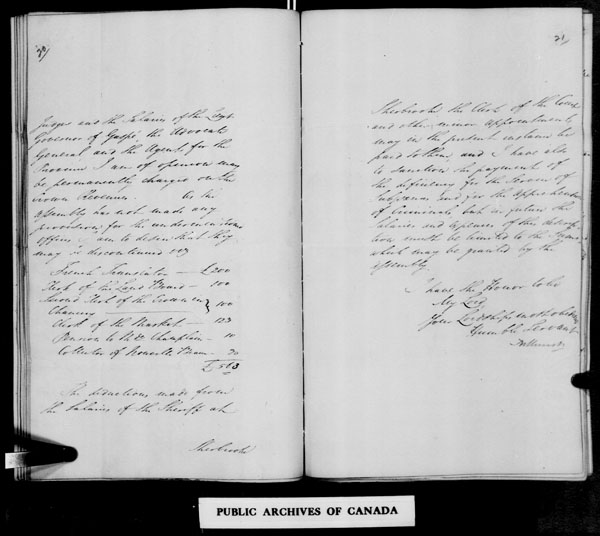 30/
Judges and the Salaries of the Lieut
Governor of Gaspé, the Advocate
General and the Agent for the
Province I am of opinion may
be permanently charged on the
Crown Revenues. As the
Assembly has not made any
provision for the undermentioned
Offices I am to desire that they
may be discontinued viz
French Translator — £200
Clerk of the Land Board — 100
Second Clerk of the Crown in
Chancery — 100
Clerk of the Market — 123
Pension to Chaplain — 10
Collector of 30
£563
The deductions made from
the Salaries of the Sheriff at
Sherbrooke
31/
Sherbrooke the Clerk of the Court
and other minor appointments
may in the present instance be
paid to them, and I have also
to sanction the payment of
the deficiency for the Service of
Subpoenas and for the apprehension
of Criminals, but in future the
Salaries and expenses of this description
must be limited to the Sums
which may be granted by the
Assembly.
I have the Honor to be
My Lord
Your Lordships most obedient
Humble Servant
PUBLIC ARCHIVES OF CANADA